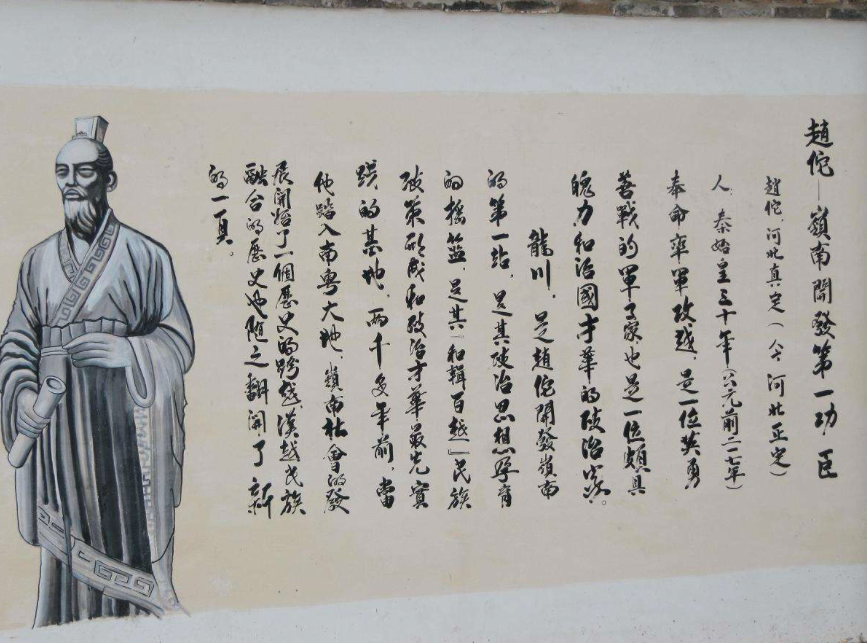 趙佗—嶺南開發第一功臣
趙佗,河北真定(今河北正定)
人,秦始皇三十年(公元前二一七年)
奉命率軍攻越,是一位英勇
善戰的軍事家也是一位頗具
魄力和治國才華的政治家。
龍川,是趙佗開發嶺南
的第一站,是其政治思想孕育
的摇篮,是其「和輯百越」民族
政策形成和政治才華最先實
踐的基地,兩千多年前,當
他踏入南粵大地,嶺南社會的發
展開始了一個歷史的跨越,漢越民族
融合的歷史也随之翻開了新
的一頁。